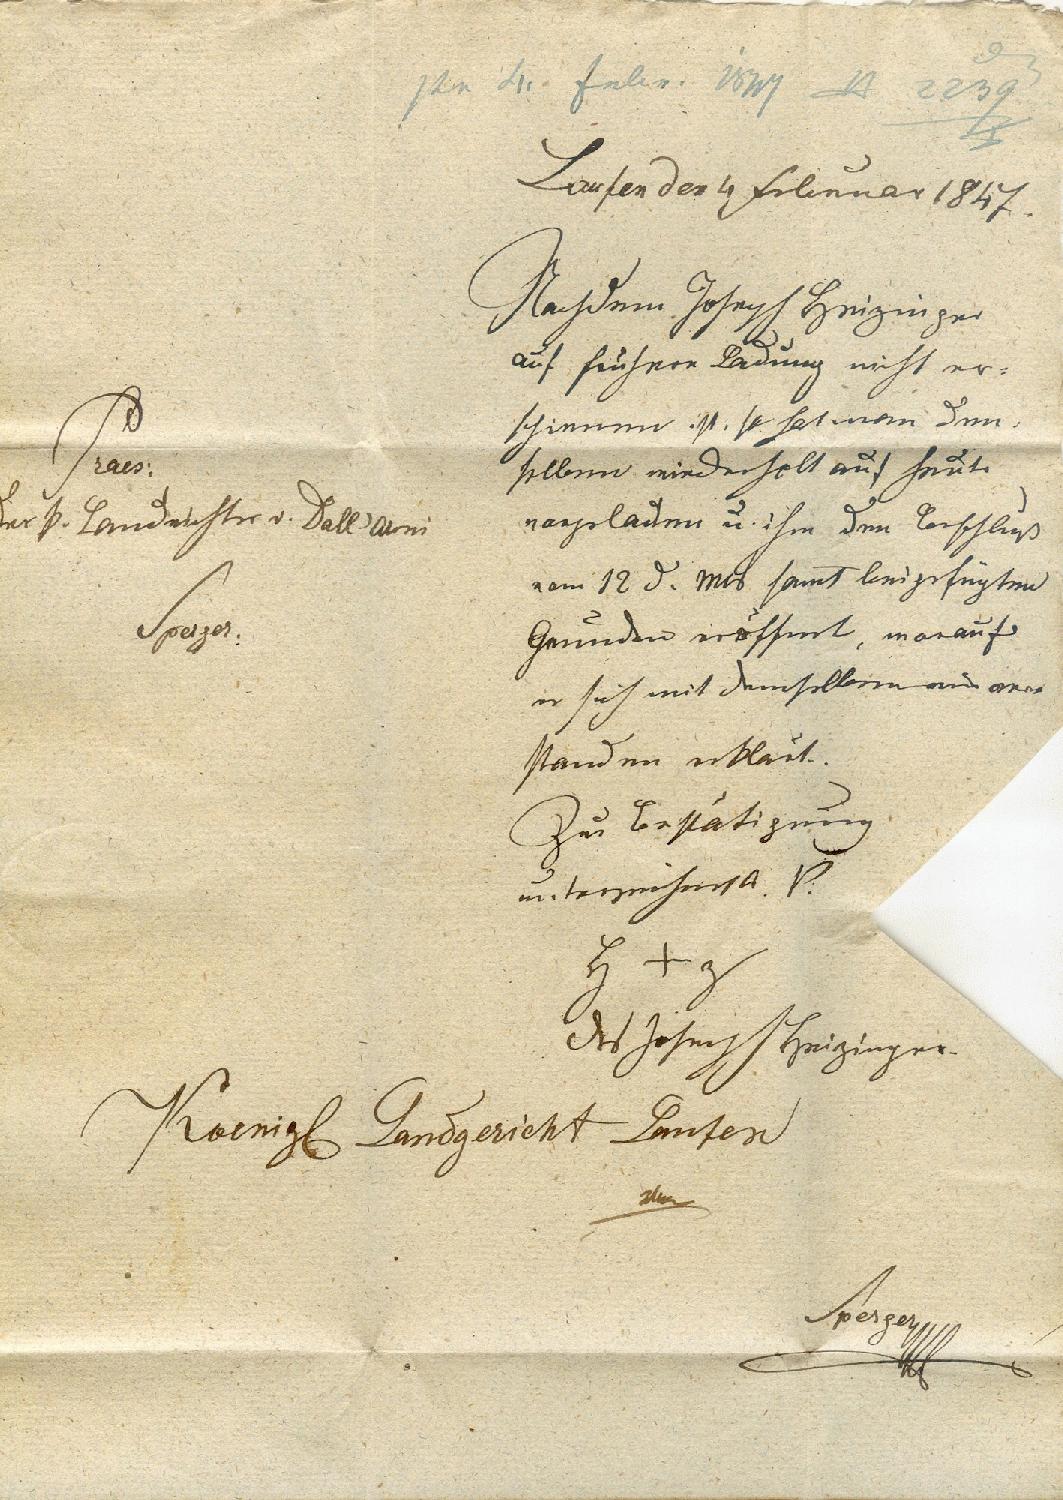 4. Febr. 1847 2239
Laufen den 4 Februar 1847.
Nachdem Joseph Heizinger
auf frühere Ladung nicht er-
schienen ist, so hat man den-
selben wiederholt auf heute
vorgeladen u. ihm den Beschluß
vom 12 d. Mts samt beigefügten
Gründen eröffnet, worauf
er sich mit demselben einver
standen erklärt.
Zur Bestätigung
unterzeichnet
H + z
des Joseph Heizinger.
Praes:
der k. Landrichter v. Dall'armi
Sperzer.
Koenigl Landgericht Laufen
Sperzer